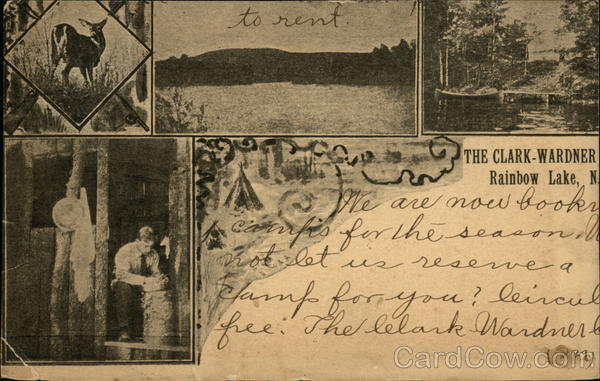 to rent.
THE CLARK-WARDNER
Rainbow Lake, N.
We are now bookn
camps for the season. W
not let us reserve a
camp for you? Circul
free. The Clark Wardner
CardCow.com